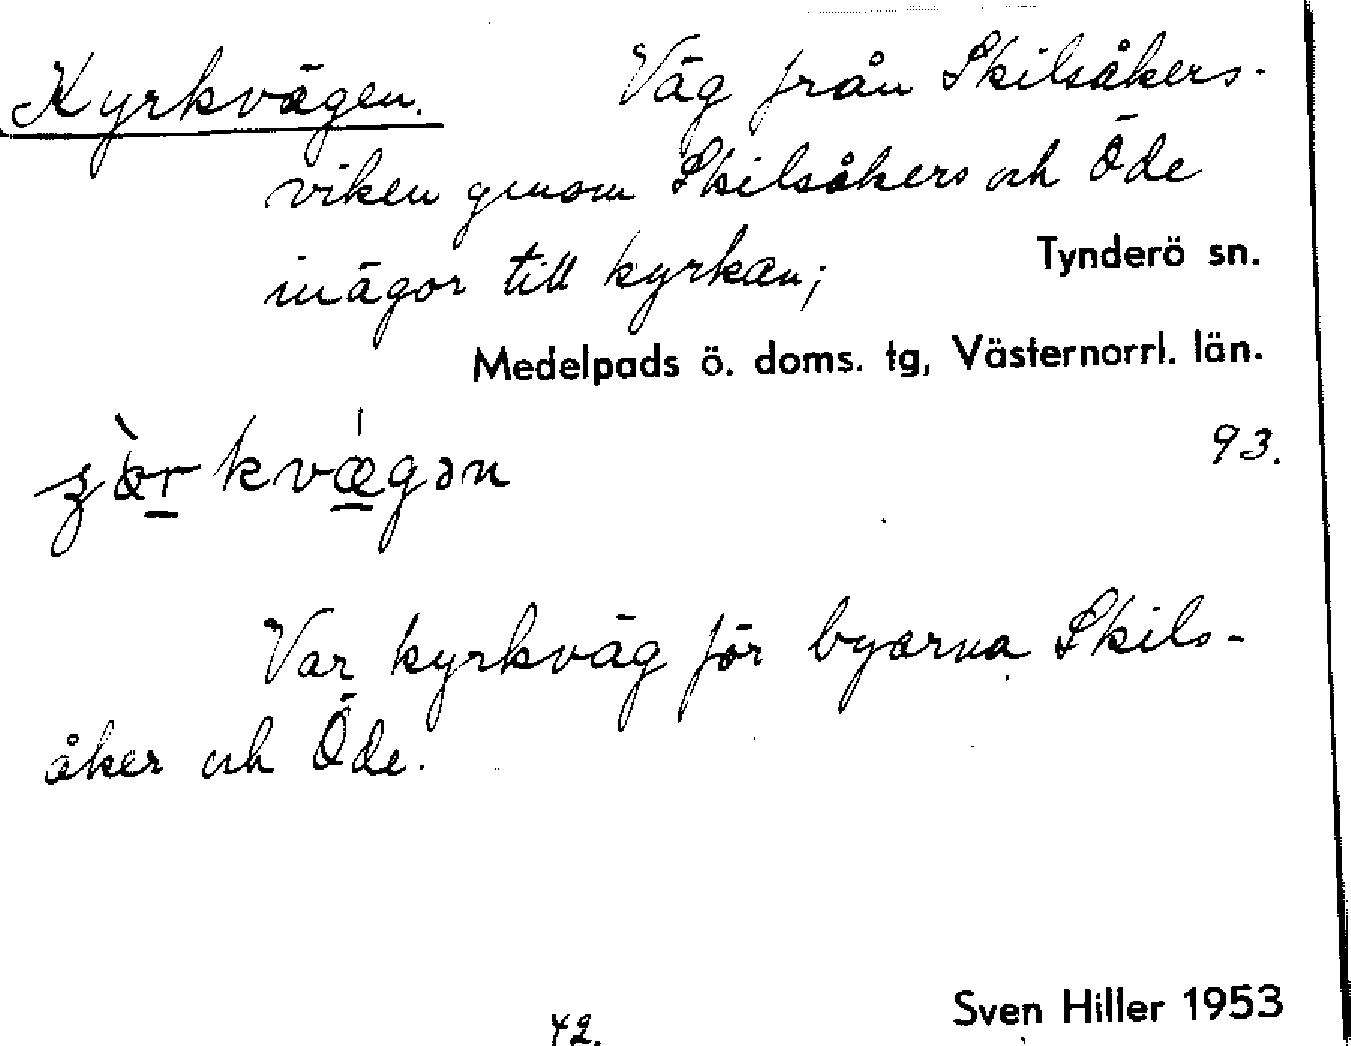 Kyrkvägen. Väg från Skilsåkers-
viken genom Skilsåkers och Öde
inägor till kyrkan; Tynderö sn.
Medelpads ö. doms. tg, Västernorrl. län.
93.
Var kyrkväg för byarna Skils-
åker och Öde.
42. Sven Hiller 1953